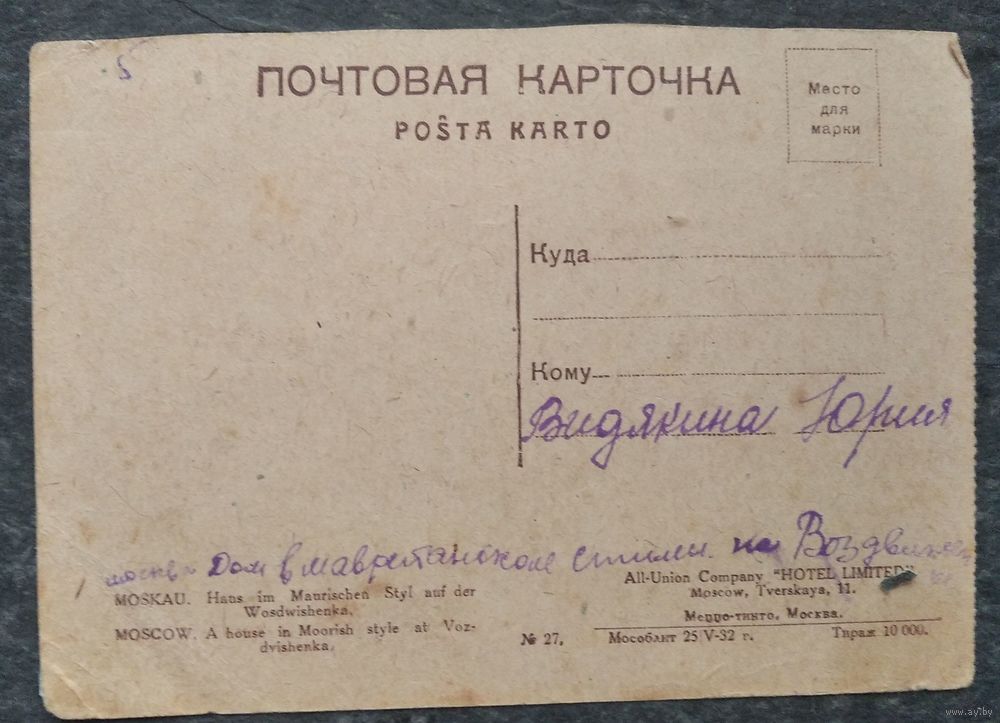 5
ПОЧТОВАЯ КАРТОЧКА
POŜTA KARTO
Место
для
марки
Куда
Кому
Видякина Юрия
Дом в мавретанском стили на Воздвиженк
MOSKAU. Haus im Maurischen Styl auf der
Wosdwishenka.
MOSCOW. A house in Moorish style at Voz-
dvishenka.
№ 27.
All-Union Company "HOTEL LIMITED"
Moscow, Tverskaya, 11.
Меццо-тинто, Москва.
Мособлит 25/V-32 г. Тираж 10 000.
www.ay.by